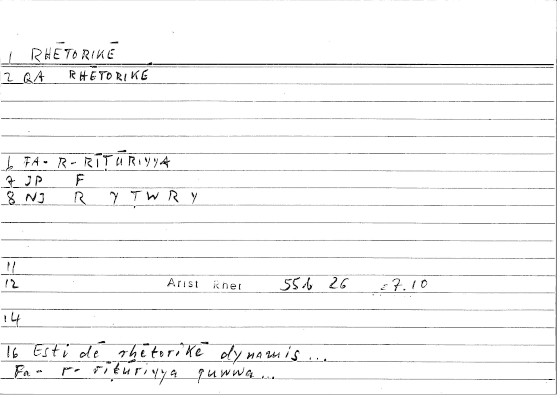 1 RHĒTORIKĒ
2 QA RHĒTORIKĒ
6 FA- R- RĪṬŪRIYYA
7 JP F
8 NJ R Y Ṭ W R Y
11
12 Arist Rhet 55b 26 = 7.10
14
16 Esti dē rhētorikē dynamis...
Fa- r- rīṭūriyya quwwa...